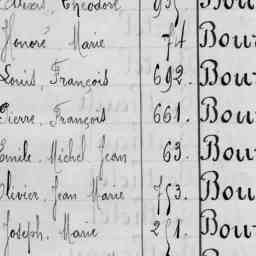 Théodore
Honoré Marie 74 Bou
Louis, François 692. Bou
Pierre, François 661. Bou
Emile, Michel Jean 63. Bou
Olivier, Jean Marie 753. Bou
Joseph, Marie 251. Bou